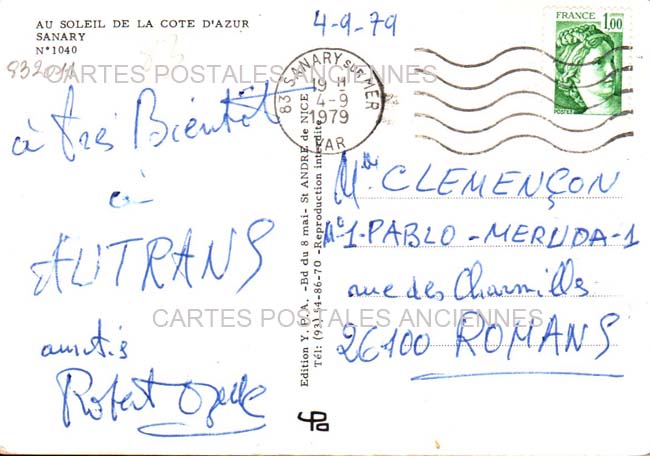 AU SOLEIL DE LA COTE D'AZUR
SANARY
N° 1040
4-9-79
FRANCE
1,00
POSTES
83 SANARY SUR MER
19 H
4-9
1979
VAR
CARTES POSTALES ANCIENNES
à très Bientôt
à
AUTRANS
amitiés
Robert
Edition Y. P. A. -Bd du 8 mai- St ANDRE de NICE
Tél: (93) 54-86-70 -Reproduction interdite
CLEMENÇON
1-PABLO-MERUDA-1
rue des Charmilles
CARTES POSTALES ANCIENNES
26100 ROMANS